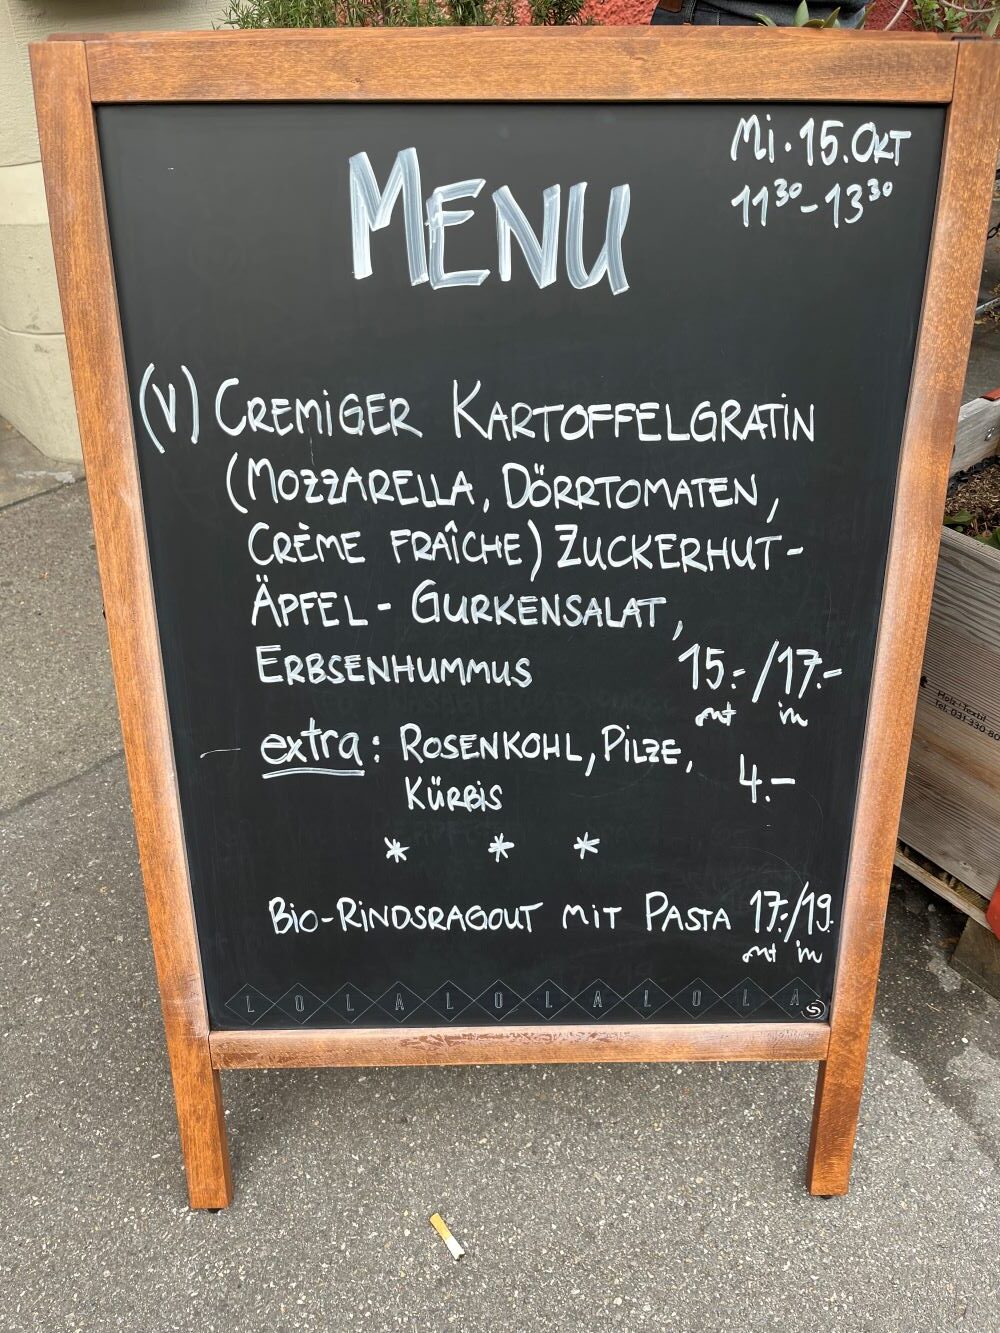 Mi. 15. OKT
11³⁰-13³⁰
MENU
(V) CREMIGER KARTOFFELGRATIN
(MOZZARELLA, DÖRRTOMATEN,
CRÈME FRAÎCHE) ZUCKERHUT-
ÄPFEL- GURKENSALAT,
ERBSENHUMMUS 15.-/17.-
out in
extra: ROSENKOHL, PILZE,
KÜRBIS 4.-
* * *
BIO-RINDSRAGOUT MIT PASTA 17.-/19.
out in
LOLALOLALOLA
Holz+Textil
Tel. 031 330 80